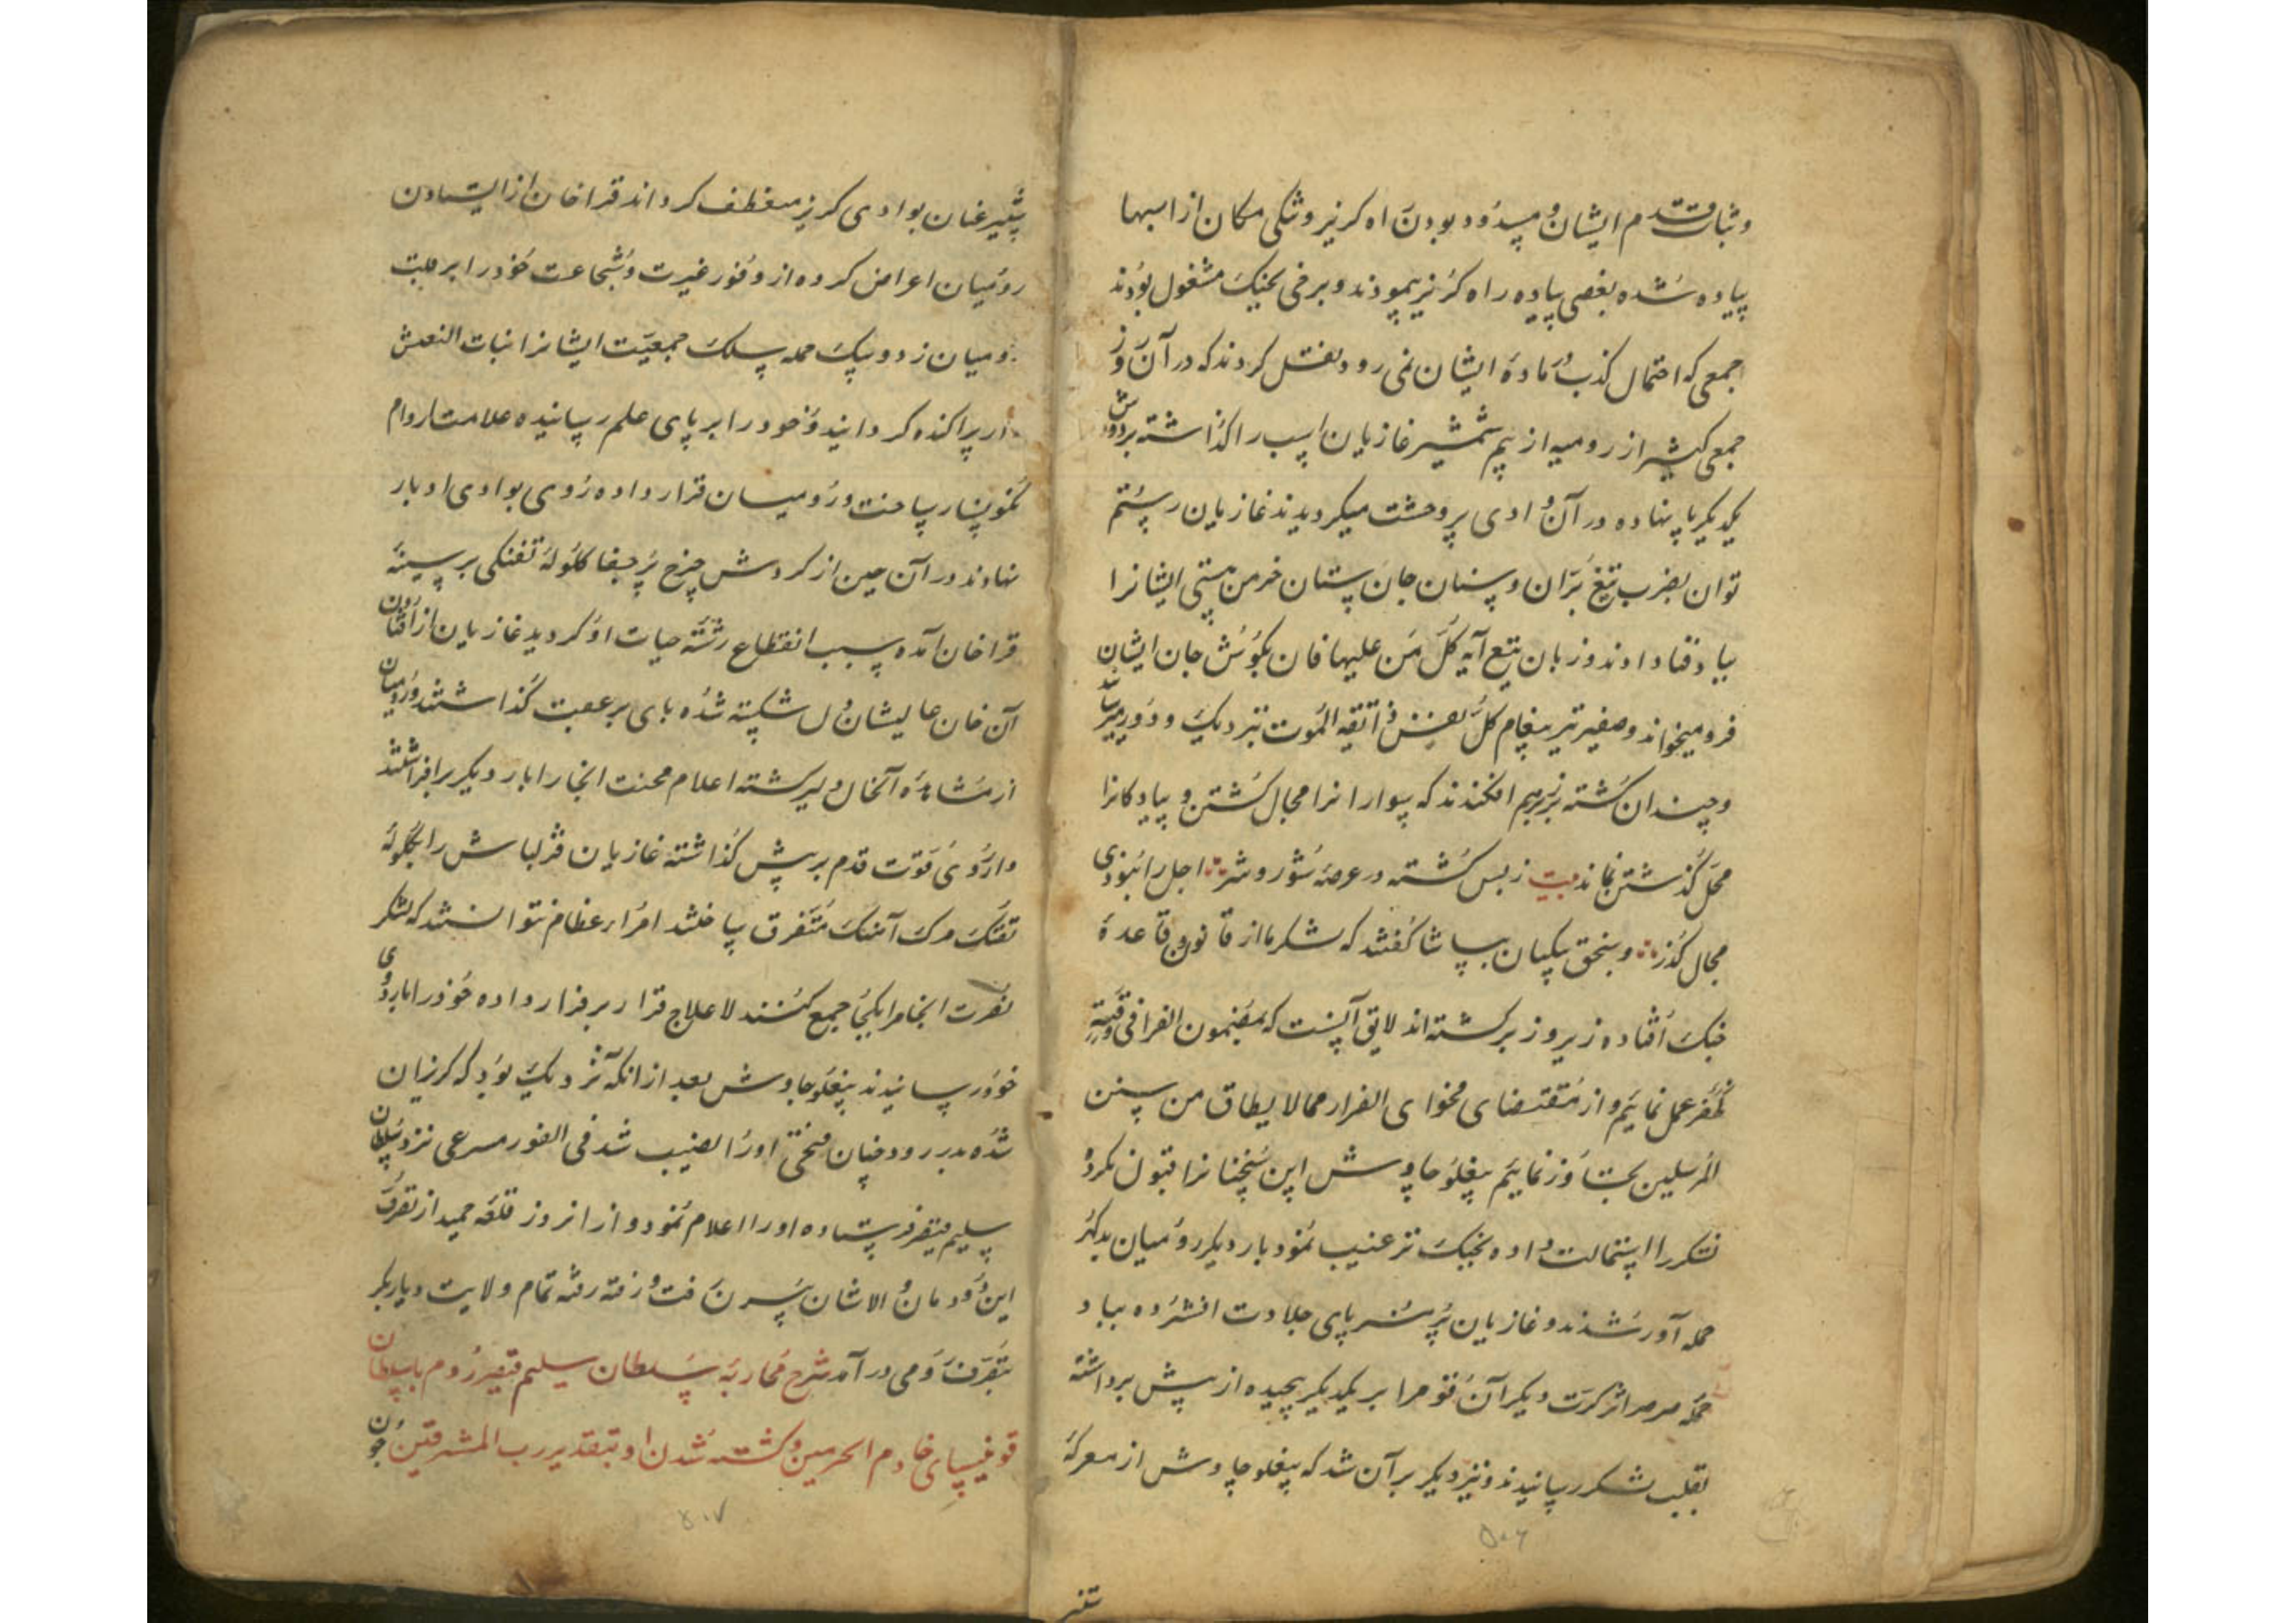 و ثبات قدم ایشان و مسدود بودن راه کریز و تنکی مکان از اسبها
پیاده شده بعضی پیاده راه کریز پیمودند و برخی بجنک مشغول بودند
جمعی که احتمال کذب در ماده ایشان نمی رود نقل کردند که در آن روز
جمعی کثیر از رومیه از بیم شمشیر غازیان اسب را کذاشته بر دوش
یکدیکر پا نهاده در آن وادی پر وحشت میکردیدند غازیان رستم
توان بضرب تیغ بران و سنان جان ستان خرمن هستی ایشانرا
بباد فنا دادند و زبان تیغ آیه کل من علیها فان بکوش جان ایشان
فرو میخواند و صفیر تیر پیغام کل نفس ذائقة الموت بنزدیک و دور میرساند
و چندان کشته بر زبر هم افکندند که سوارانرا مجال کشتن و پیادکانرا
محل کذشتن نماند بیت ز بس کشته در عرصه شور و شر اجل را نبودی
مجال کذر و سنجق بیکیان بپاشا کفتند که لشکر ما از قانون و قاعده
جنک افتاده زیر و زبر کشته اند لایق آنست که بمضمون الفرار فی وقته
ظفر عمل نمائیم و از مقتضای فحوای الفرار مما لا یطاق من سنن
المرسلین تجاوز ننمائیم بیغلو چاوش این سخنانرا قبول نکرده
لشکر را استمالت داده بجنک ترغیب نمود بار دیکر رومیان بدکهر
حمله آور شدند و غازیان پر هنر پای جلادت افشرده بباد
حمله صرصر اثر کرت دیکر آن قوم را بر یکدیکر پیچیده از پیش برداشته
بقلب لشکر رسانیدند و نزدیک بر آن شد که بیغلو چاوش از معرکه
ستیز
ستیز عنان بوادی کریز منعطف کرداند قراخان از ایستادن
رومیان اعراض کرده از وفور غیرت و شجاعت خود را بر قلب
رومیان زد و بیک حمله سلک جمعیت ایشانرا بنات النعش
وار پراکنده کردانید و خود را بر پای علم رسانیده علامت را وام
نکونسار ساخت و رومیان قرار داده روی بوادی ادبار
نهادند در آن حین از کردش چرخ پر جفا کلوله تفنکی بر سینه
قراخان آمده سبب انقطاع رشته حیات او کردید غازیان از افتادن
آن خان عالیشان دل شکسته شده پای بر عقب کذاشتند و رومیان
از مشاهده آنحال دلیر کشته اعلام محنت انجام را بار دیکر برافراشتند
و از روی قوت قدم بر پیش کذاشته غازیان قزلباش را بکلوله
تفنک مرک آهنک متفرق ساختند امراء عظام نتوانستند که لشکر
نصرت انجام را بیکجا جمع کنند لاعلاج قرار بر فرار داده خود را باردوی
خود رسانیدند بیغلو چاوش بعد از آنکه نزدیک بود که کریزان
شده بدر رود چنان فتحی او را نصیب شد فی الفور مسرعی نزد سلطان
سلیم قیصر فرستاده او را اعلام نمود و از آنروز قلعه حمید از تصرف
این دودمان والاشان بیرون رفت و رفته رفته تمام ولایت دیاربکر
بتصرف رومی در آمد شرح محاربه سلطان سلیم قیصر روم با سلطان
قوغیسای خادم الحرمین و کشته شدن او بتقدیر رب المشرقین چون
۵۰۶
۵۰۷